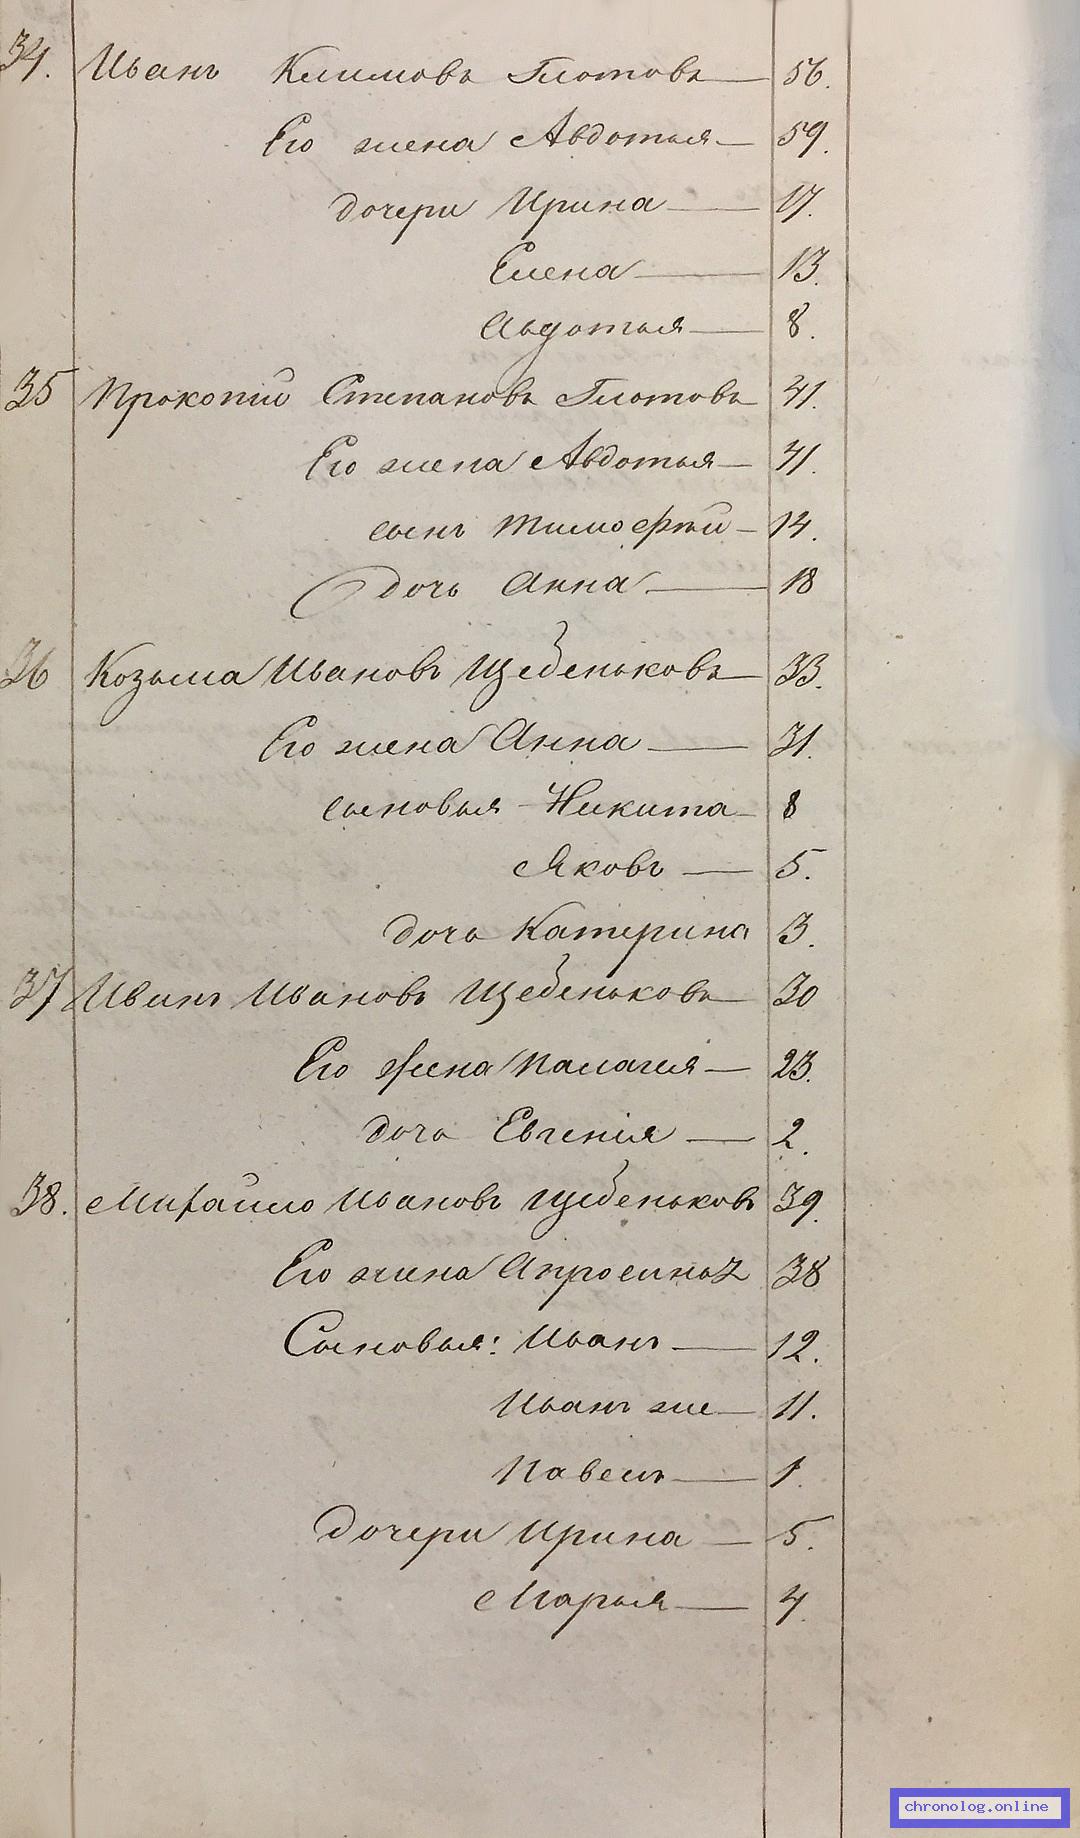 34. Иванъ Климовъ Глотовъ — 56.
Его жена Авдотья — 59.
дочери Ирина — 17.
Елена — 13.
Авдотья — 8.
35 Прокопій Степановъ Глотовъ 41.
Его жена Авдотья — 41.
сынъ Тимофѣй — 14.
дочь Анна — 18
36 Козьма Ивановъ Щебеньковъ — 33.
Его жена Анна — 31.
сыновья Никита — 8
Яковъ — 5.
дочь Катерина 3.
37 Иванъ Ивановъ Щебеньковъ — 30
Его жена Палагия — 23.
дочь Евгенія — 2.
38. Михайло Ивановъ Щебеньковъ 39.
Его жена Апросинья 38
Сыновья: Иванъ — 12.
Иванъ же — 11.
Павелъ — 1.
дочери Ирина — 5.
Марья — 4.
chronolog.online